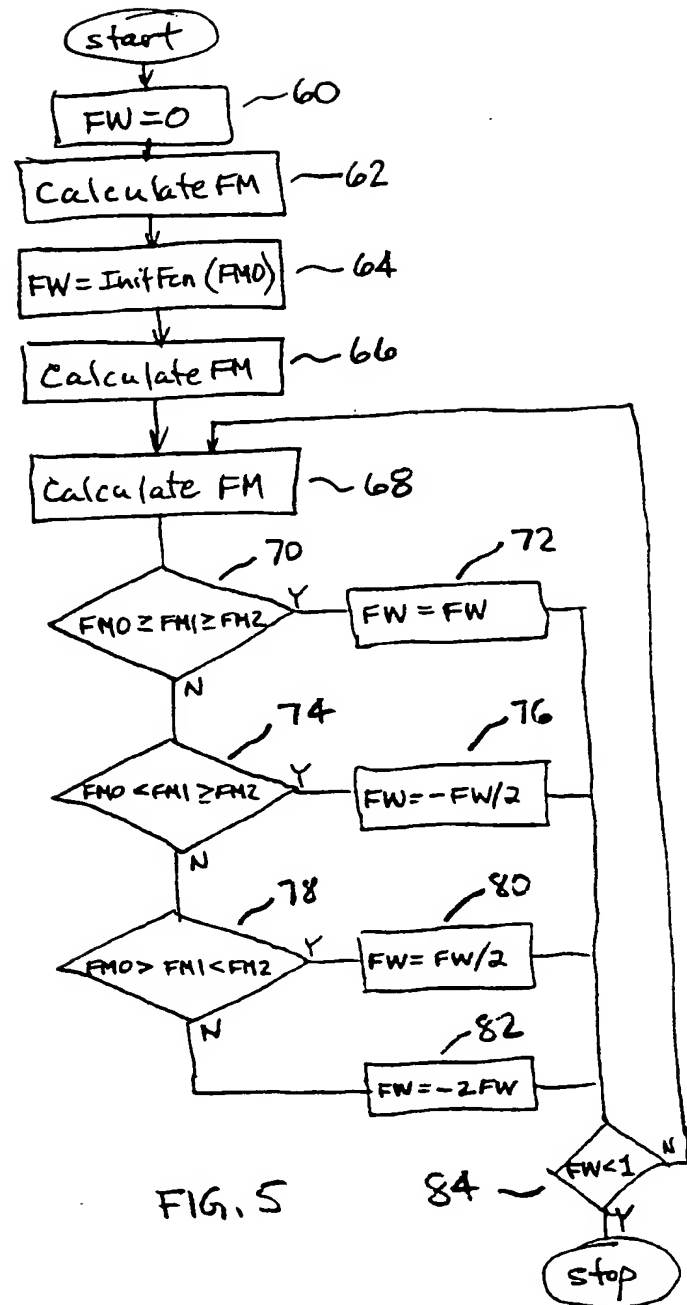 start
FW=0 60
Calculate FM 62
FW=InitFcn (FM0) 64
Calculate FM 66
Calculate FM 68
70 72
FM0≥FM1≥FM2 Y FW=FW
N
74 76
FM0<FM1≥FM2 Y FW=-FW/2
N
78 80
FM0>FM1<FM2 Y FW=FW/2
N
82
FW=-2FW
FW<1 N
FIG. 5 84
Y
stop